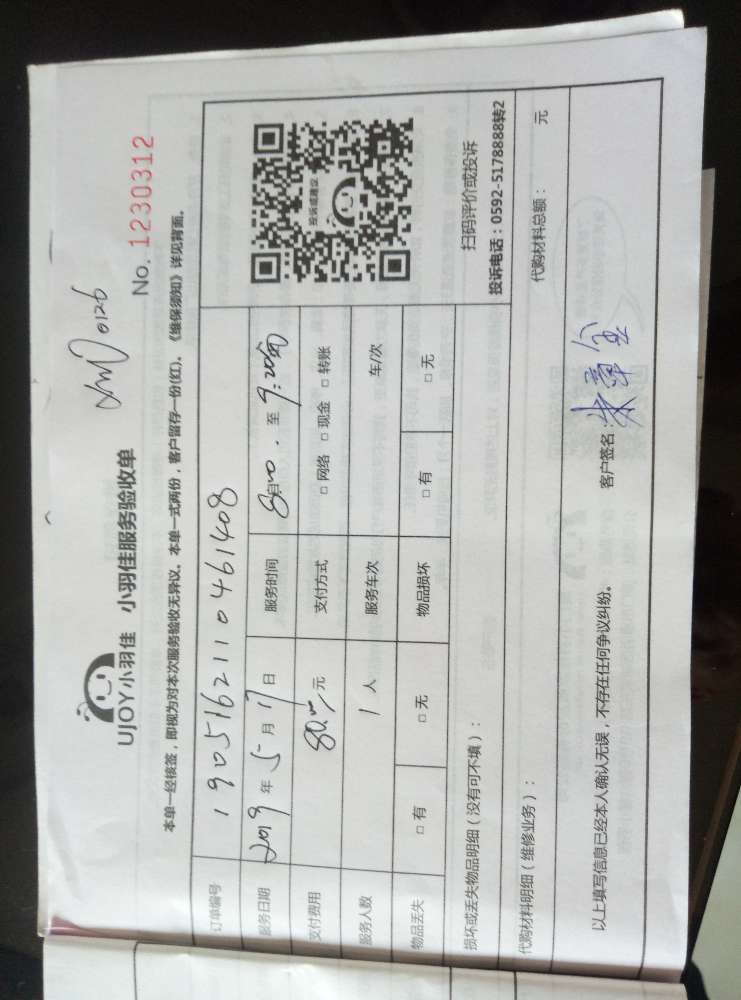 UJOY小羽佳 小羽佳服务验收单
0126
No. 1230312
本单一经核签，即视为对本次服务验收无异议。本单一式两份，客户留存一份(红)。《维保须知》详见背面。
订单编号 190516211046 1408
服务日期 2019 年 5 月 17 日 服务时间 自 8:00 至 9:20
支付费用 80.00 元 支付方式 □ 网络 □ 现金 □ 转账
服务人数 1 人 服务车次 车/次
物品丢失 □ 有 □ 无 物品损坏 □ 有 □ 无
投诉或建议
扫码评价或投诉
投诉电话：0592-5178888转2
损坏或丢失物品明细（没有可不填）：
代购材料明细（维修业务）： 代购材料总额： 元
以上填写信息已经本人确认无误，不存在任何争议纠纷。 客户签名：